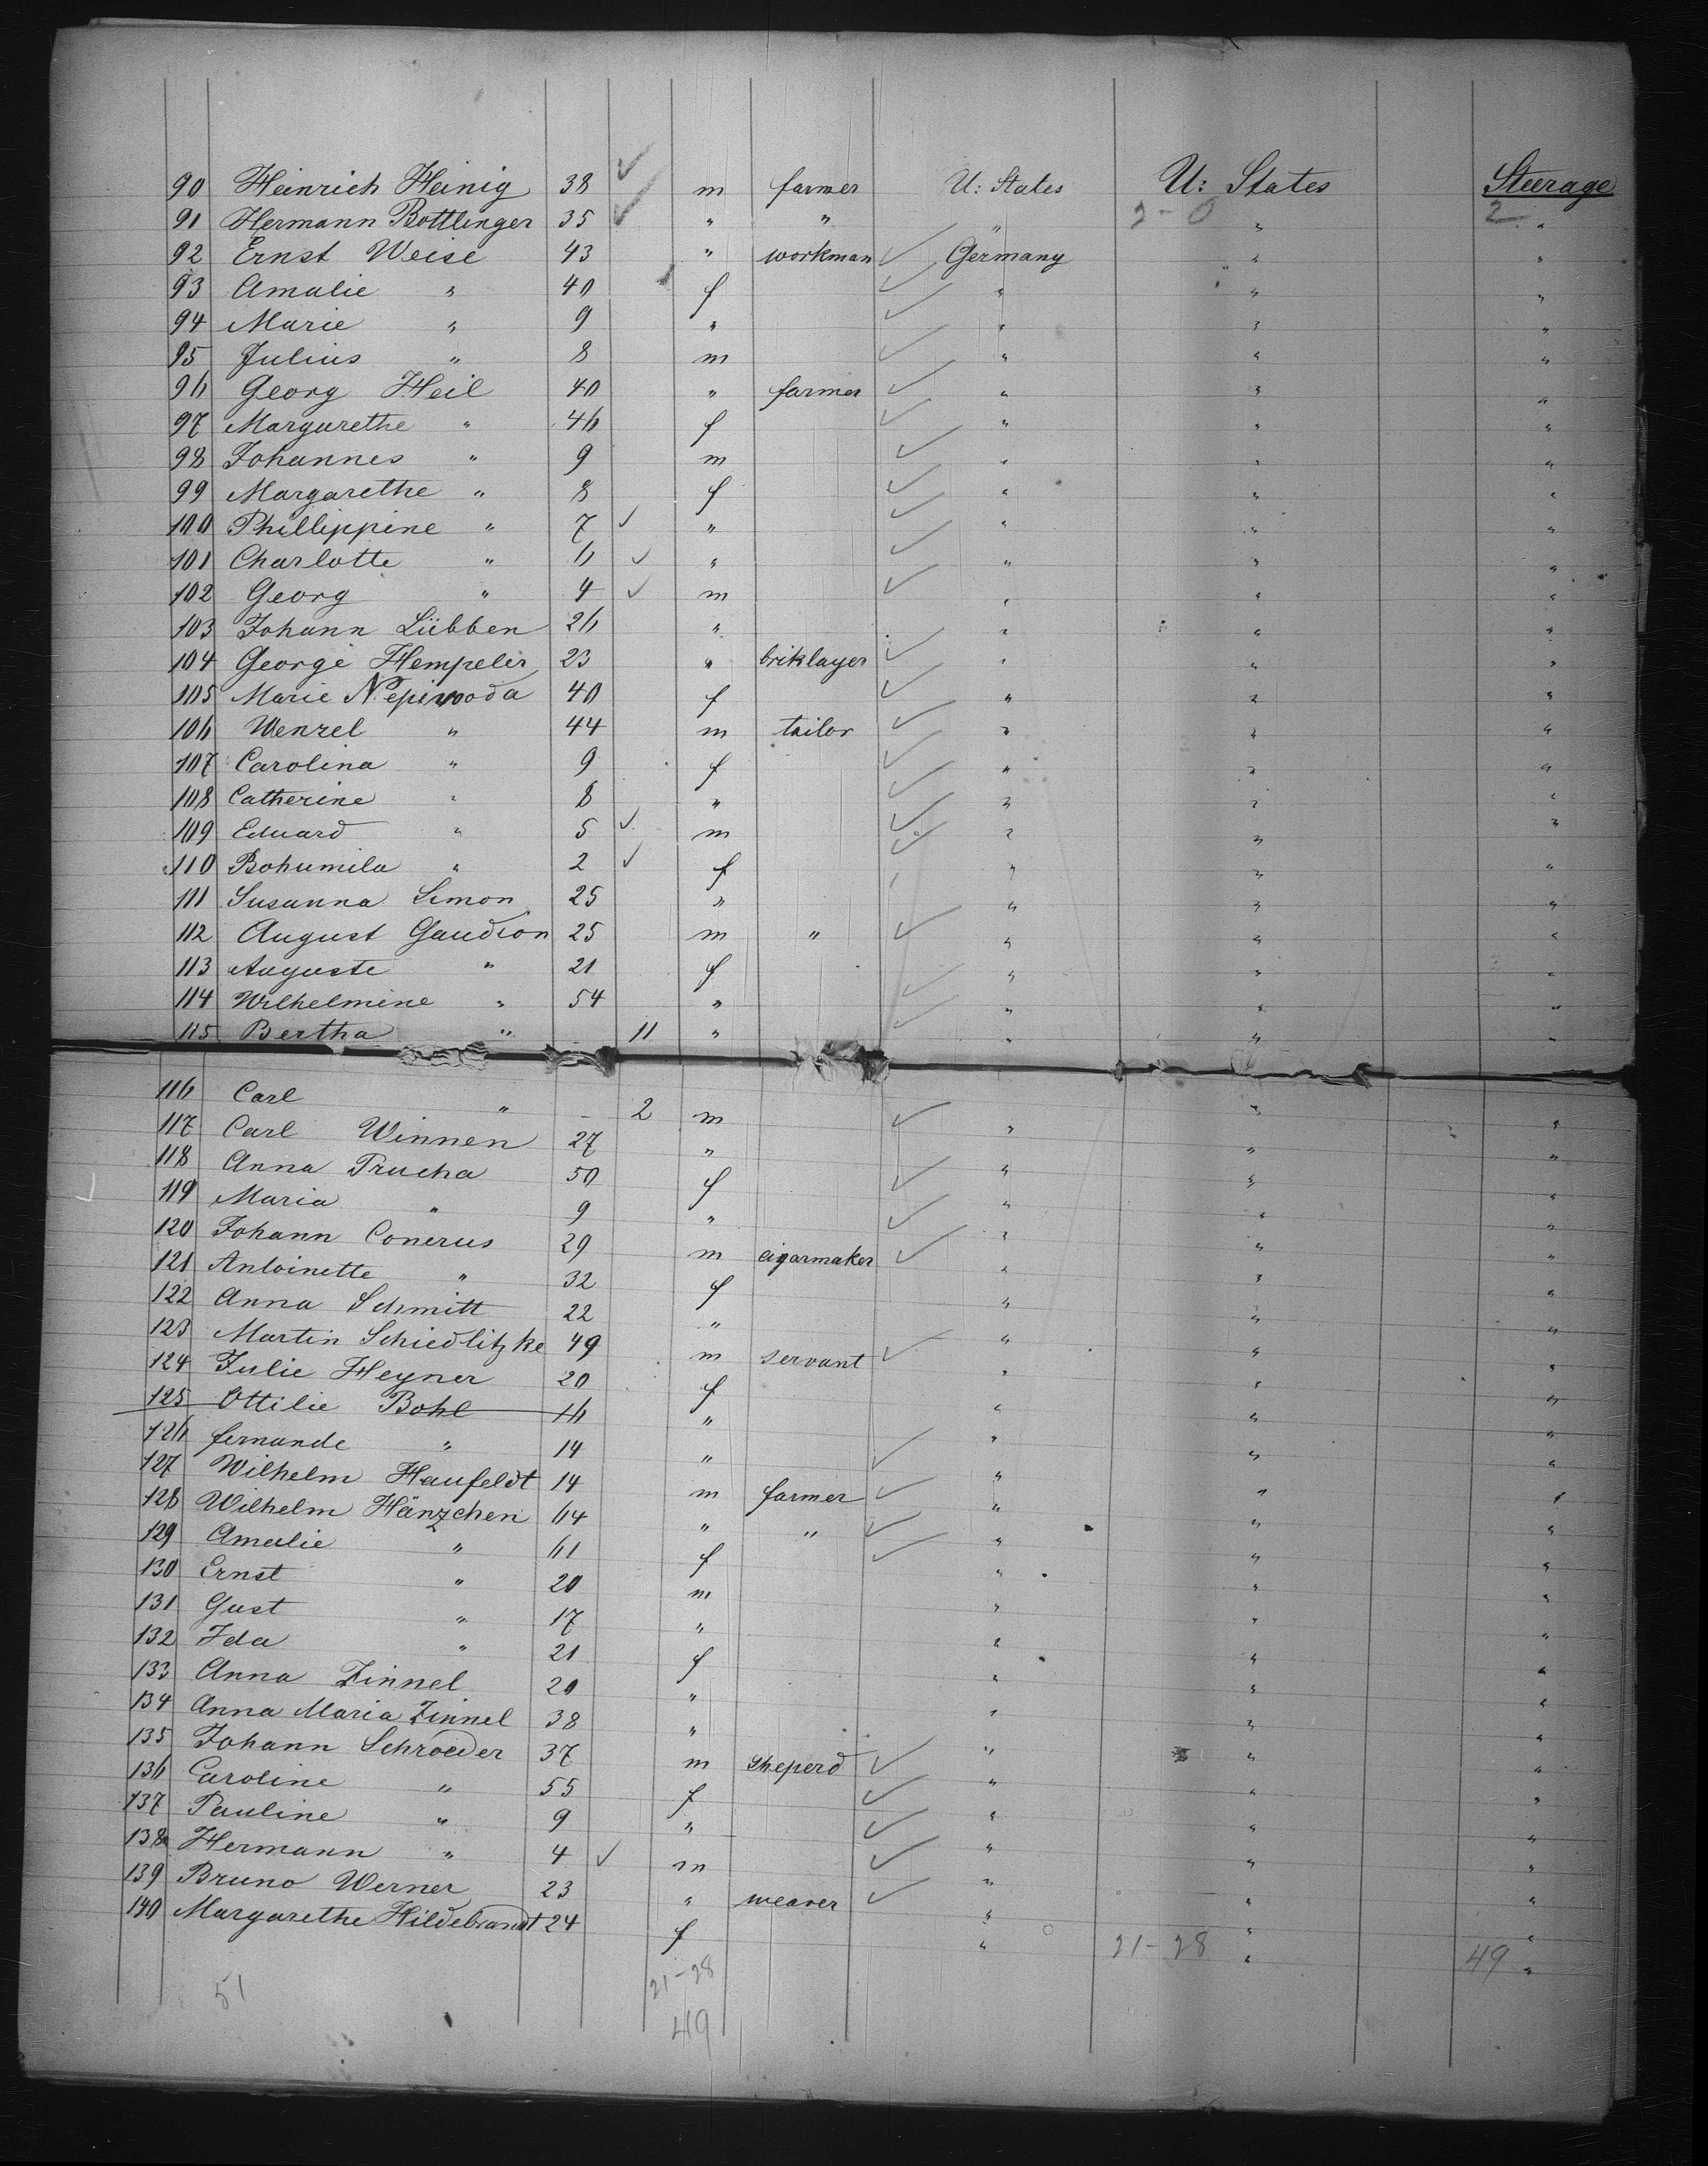 90 Heinrich Heinig 38 ✓ m farmer U: States U: States Steerage
91 Hermann Bottlinger 35 ✓ " " " 2-0 " 2 "
92 Ernst Weise 43 " workman ✓ Germany " "
93 Amalie " 40 f ✓ " " "
94 Marie " 9 " ✓ " " "
95 Julius " 8 m ✓ " " "
96 Georg Heil 40 " farmer ✓ " " "
97 Margarethe " 46 f ✓ " " "
98 Johannes " 9 m ✓ " " "
99 Margarethe " 8 f ✓ " " "
100 Phillippine " 7 ✓ " ✓ " " "
101 Charlotte " 6 ✓ " ✓ " " "
102 Georg " 4 ✓ m ✓ " " "
103 Johann Lübben 26 " " " "
104 George Hempeler 23 " briklayer ✓ " " "
105 Marie Nepiwoda 40 f ✓ " " "
106 Wenzel " 44 m tailor ✓ " " "
107 Carolina " 9 f ✓ " " "
108 Catherine " 8 " ✓ " " "
109 Eduard " 5 ✓ m ✓ " " "
110 Bohumila " 2 ✓ f ✓ " " "
111 Susanna Simon 25 " " " "
112 August Gaudion 25 m " ✓ " " "
113 Auguste " 21 f ✓ " " "
114 Wilhelmine " 54 " ✓ " " "
115 Bertha " 11 " ✓ " " "
116 Carl " 2 m ✓ " " "
117 Carl Winnen 27 " " " "
118 Anna Prucha 50 f ✓ " " "
119 Maria " 9 " ✓ " " "
120 Johann Conerus 29 m cigarmaker ✓ " " "
121 Antoinette " 32 f " " "
122 Anna Schmitt 22 " " " "
123 Martin Schiedlitzke 49 m servant ✓ " " "
124 Julie Heyner 20 f " " "
125 Ottilie Bohl 16 " " " "
126 fernande " 14 " ✓ " " "
127 Wilhelm Haufeldt 14 m farmer ✓ " " "
128 Wilhelm Hänzchen 64 " " ✓ " " "
129 Amalie " 61 f ✓ " " "
130 Ernst " 20 m " " "
131 Gust " 17 " " " "
132 Ida " 21 f " " "
133 Anna Zinnel 20 " " " "
134 Anna Maria Zinnel 38 " " " "
135 Johann Schroeder 37 m sheperd ✓ " " "
136 Caroline " 55 f ✓ " " "
137 Pauline " 9 " ✓ " " "
138 Hermann " 4 ✓ m ✓ " " "
139 Bruno Werner 23 " weaver ✓ " " "
140 Margarethe Hildebrandt 24 f " 21-28 " 49 "
51 21-28
49